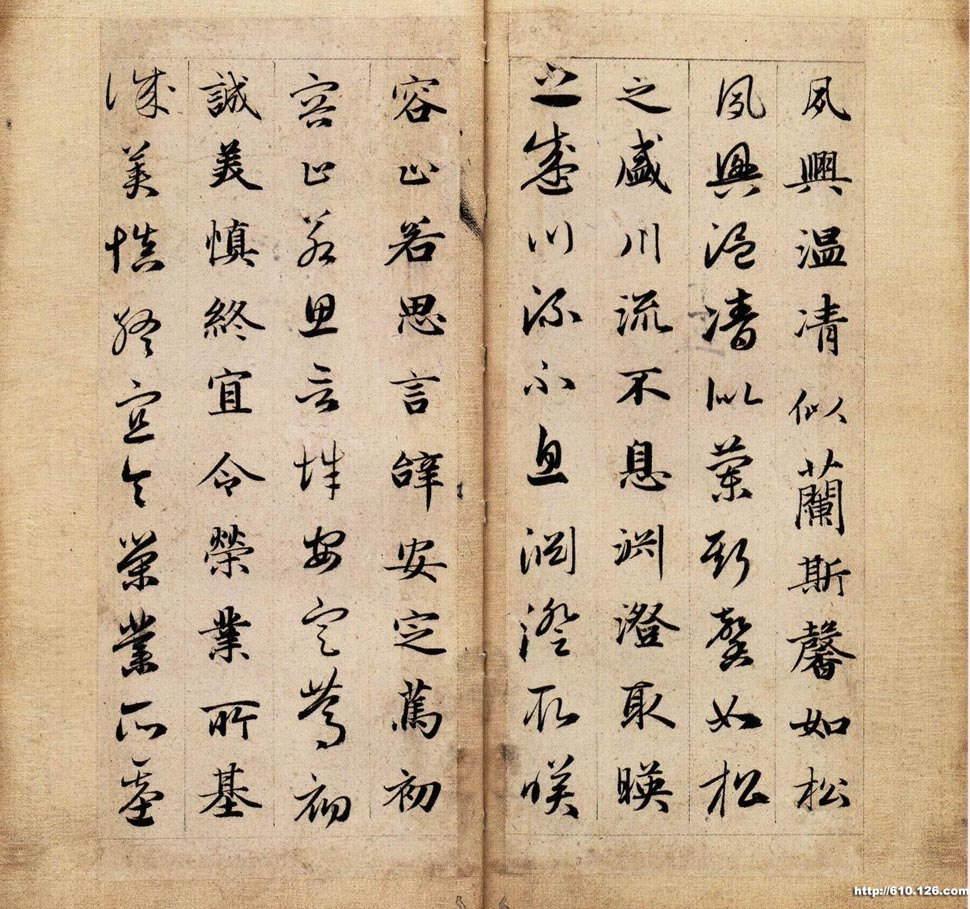 夙興温凊似蘭斯馨如松
夙興温凊似蘭斯馨如松
之盛川流不息淵澄取暎
之盛川流不息淵澄取暎
容止若思言辝安定篤初
容止若思言辝安定篤初
誠美慎終宜令榮業所基
誠美慎終宜令榮業所基
http://610.126.com